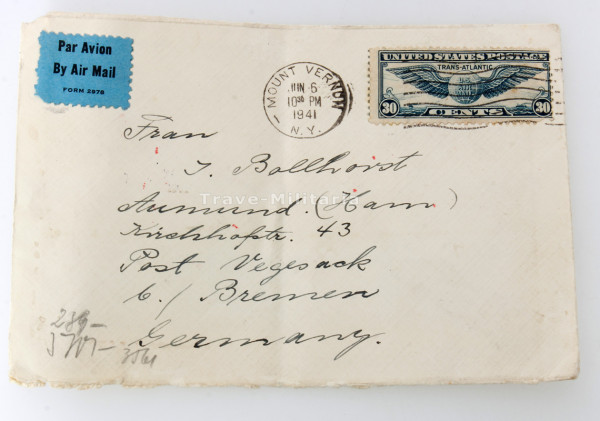 Par Avion
By Air Mail
FORM 2978
MOUNT VERNON
JUN 6
10 30 PM
1941
N.Y.
UNITED STATES POSTAGE
TRANS-ATLANTIC
30 CENTS 30
Frau
J. Bollhorst
Aumund. (Ham)
Kirchhofstr. 43
Post Vegesack
b./ Bremen
Germany.
Trave-Militaria
286-